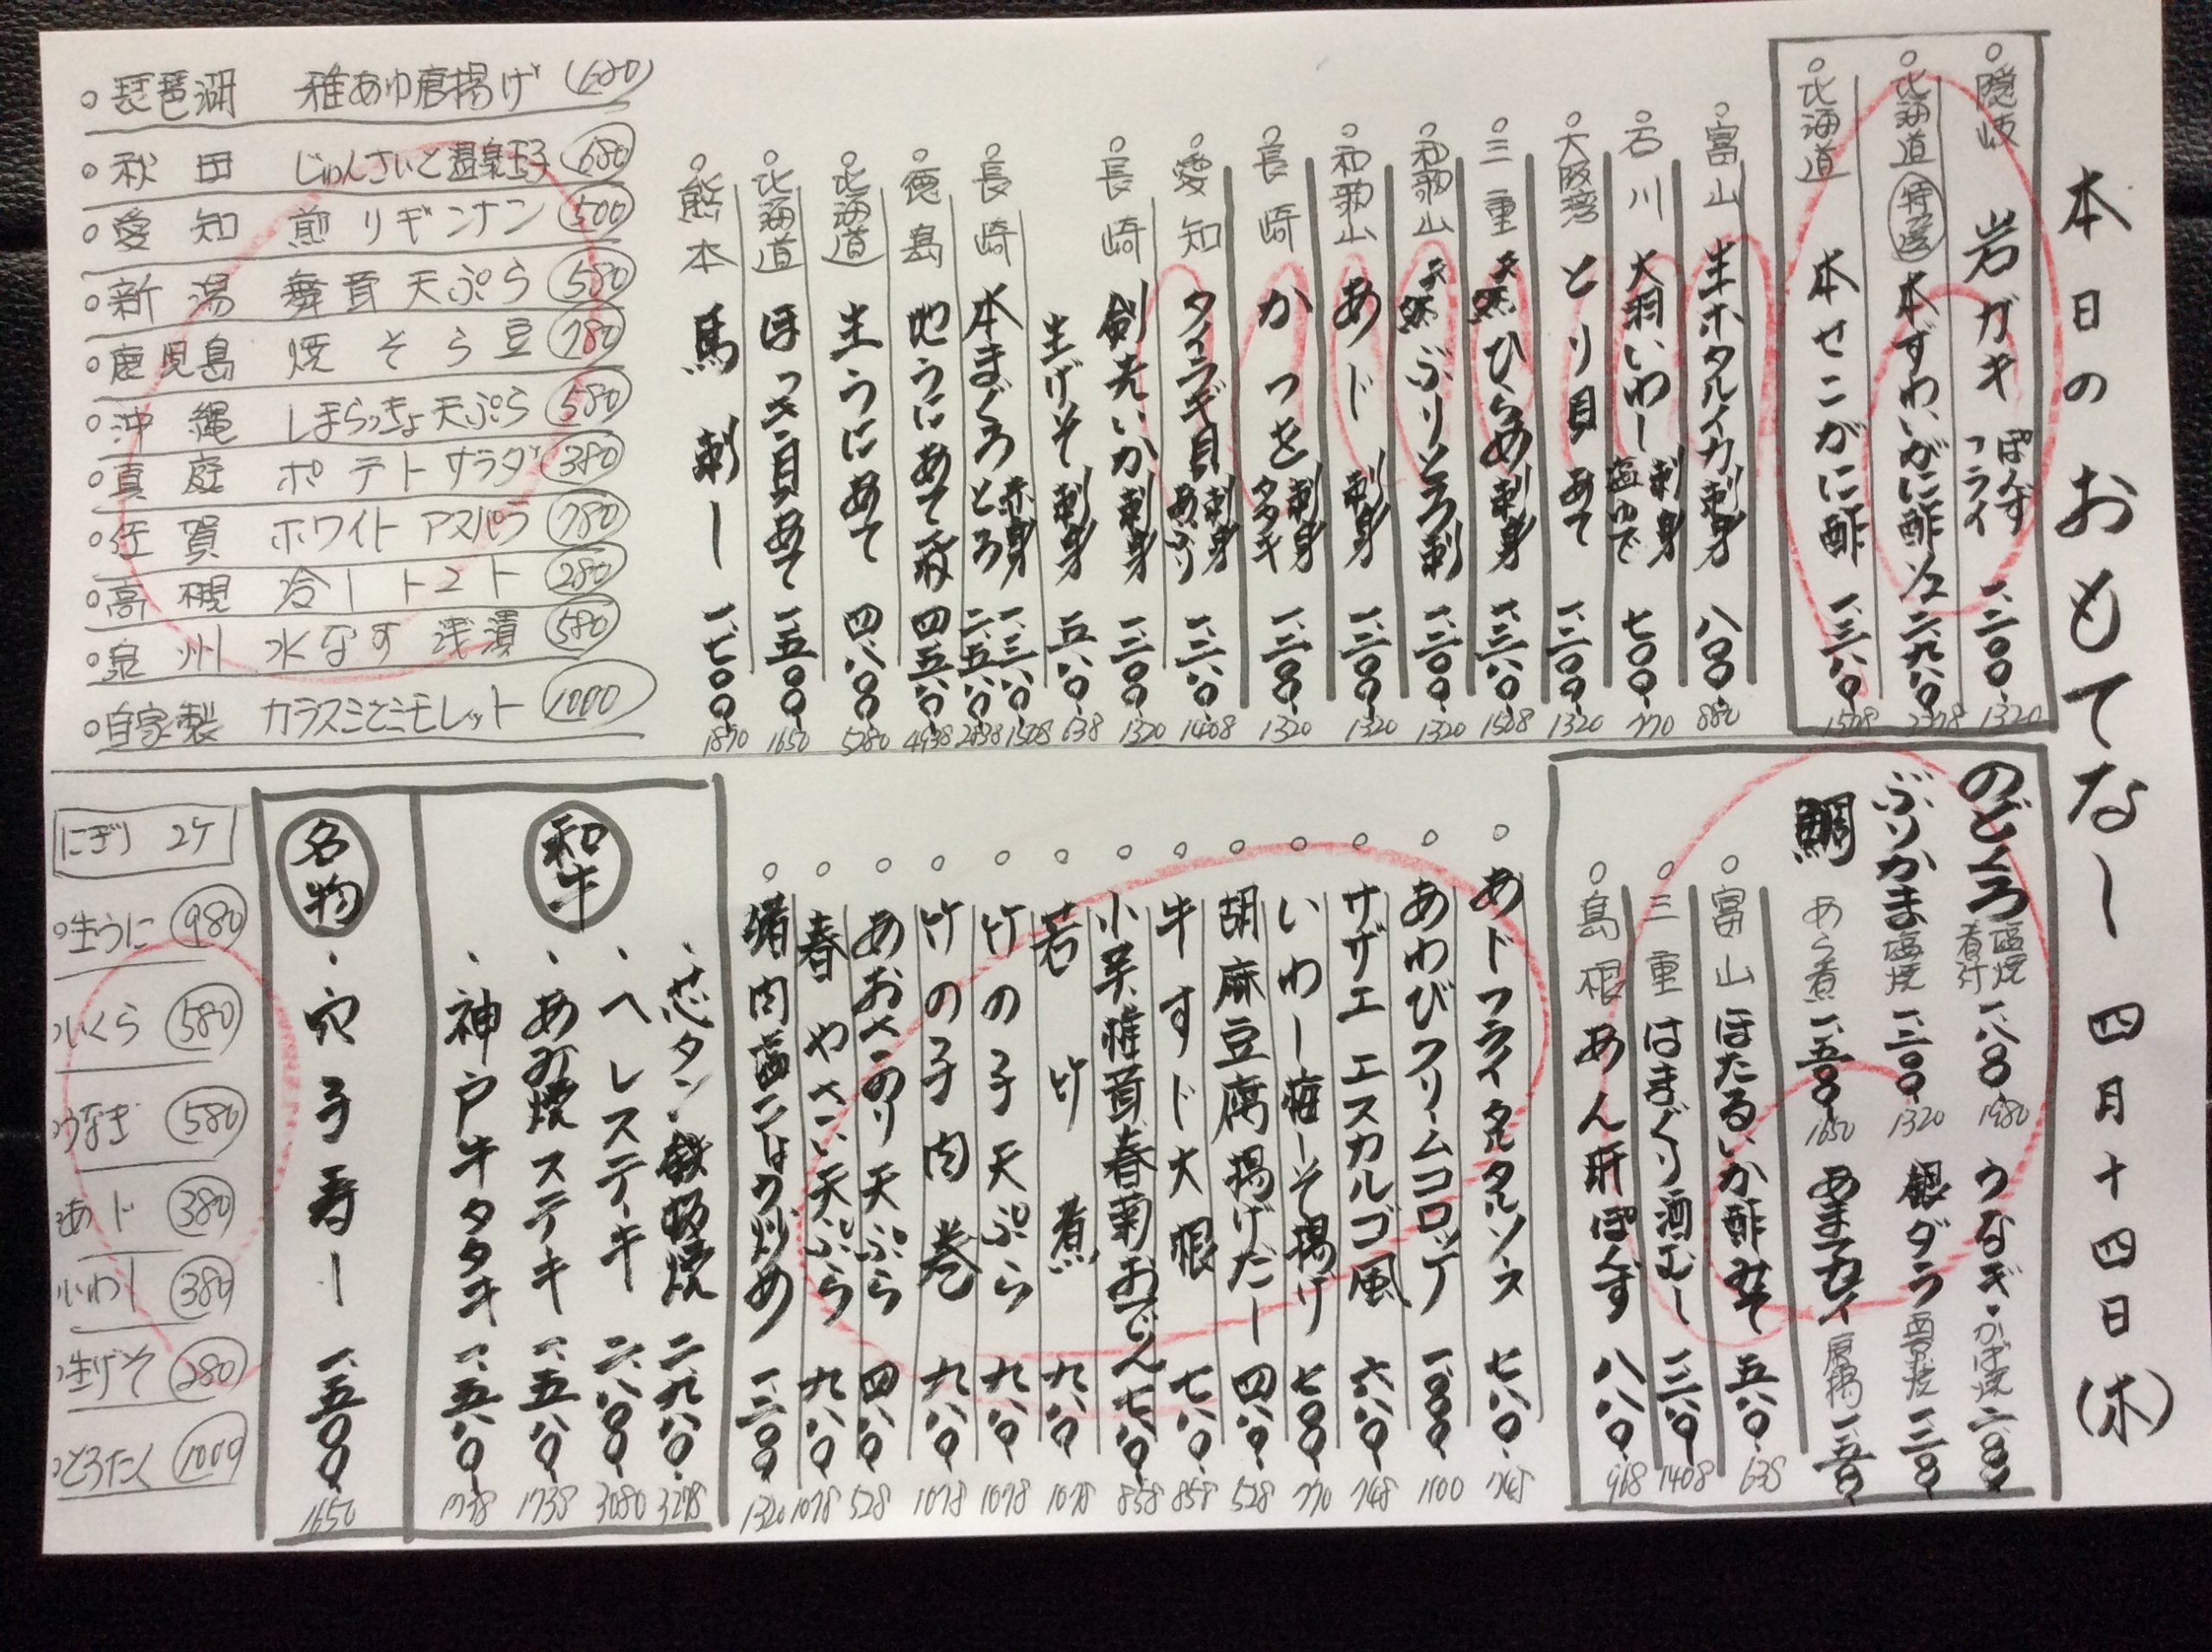 本日のおもてなし 四月十四日(木)
隠岐 岩ガキ ぽんず フライ 一、二00 1320
北海道 特選 本ずわいがに酢 1/2 二、九八0
北海道 本せこがに酢 一、三八0 1508
富山 生ホタルイカ刺身 八00 880
石川 大羽いわし 刺身 塩ゆで 七00 770
大阪湾 とり貝 あて 一、二00 1320
三重 天然 ひらめ刺身 一、三八0 1508
和歌山 天然 ぶりとろ刺 一、二00 1320
和歌山 あじ 刺身 一、二00 1320
長崎 かつを 刺身 タタキ 一、二00 1320
愛知 タイラギ貝 刺身 あぶり 一、二八0 1408
長崎 剣先いか刺身 一、二00 1320
生げそ 刺身 五八0 638
長崎 本まぐろ 赤身 一、三八0 1508
とろ 二、五八0 2838
徳島 地うにあて一枚 四五八0 4938
北海道 生うにあて 四、八00 5280
北海道 ほっき貝あて 一、五00 1650
熊本 馬刺し 一、七00 1870
琵琶湖 稚あゆ唐揚げ 680
秋田 じゅんさいと温泉玉子 680
愛知 煎りギンナン 500
新潟 舞茸天ぷら 580
鹿児島 焼そら豆 780
沖縄 しまらっきょ天ぷら 580
真庭 ポテトサラダ 380
佐賀 ホワイトアスパラ 780
高槻 冷しトマト 280
泉州 水なす浅漬 580
自家製 カラスミとミモレット 1000
のどくろ 塩焼 煮付 一、八00 1980
ぶりかま 塩焼 一、二00 1320
鯛 あら煮 一、五00 1650
うなぎ・かば焼 二、八00
銀ダラ 西京焼
あまてガレイ 唐揚
富山 ほたるいか酢みそ 五八0 638
三重 はまぐり酒むし 一、二八0 1408
島根 あん肝ぽんず 八八0 968
あじフライタルタルソース 七八0
あわびクリームコロッケ 一、000 1100
サザエ エスカルゴ風 六八0 748
いわし梅しそ揚げ 七00 770
胡麻豆腐揚げだし 四八0 528
牛すじ大根 七八0 858
小芋椎茸春菊おでん 七八0 858
若竹煮 九八0 1078
竹の子天ぷら 九八0 1078
竹の子肉巻 九八0 1078
あおさのり天ぷら 四八0 528
春やさい天ぷら 九八0 1078
猪肉塩こはウ炒め 一、二00 1320
和牛
芯タン鉄板焼 二、九八0 3278
ヘレステーキ 二、八00 3080
あみ焼ステーキ 一、五八0 1738
神戸牛タタキ 一、五八0 1738
名物
穴子寿し 一、五00 1650
にぎり 2ケ
生うに 980
いくら 580
うなぎ 580
あじ 380
いわし 380
生げそ 280
とろたく 1000